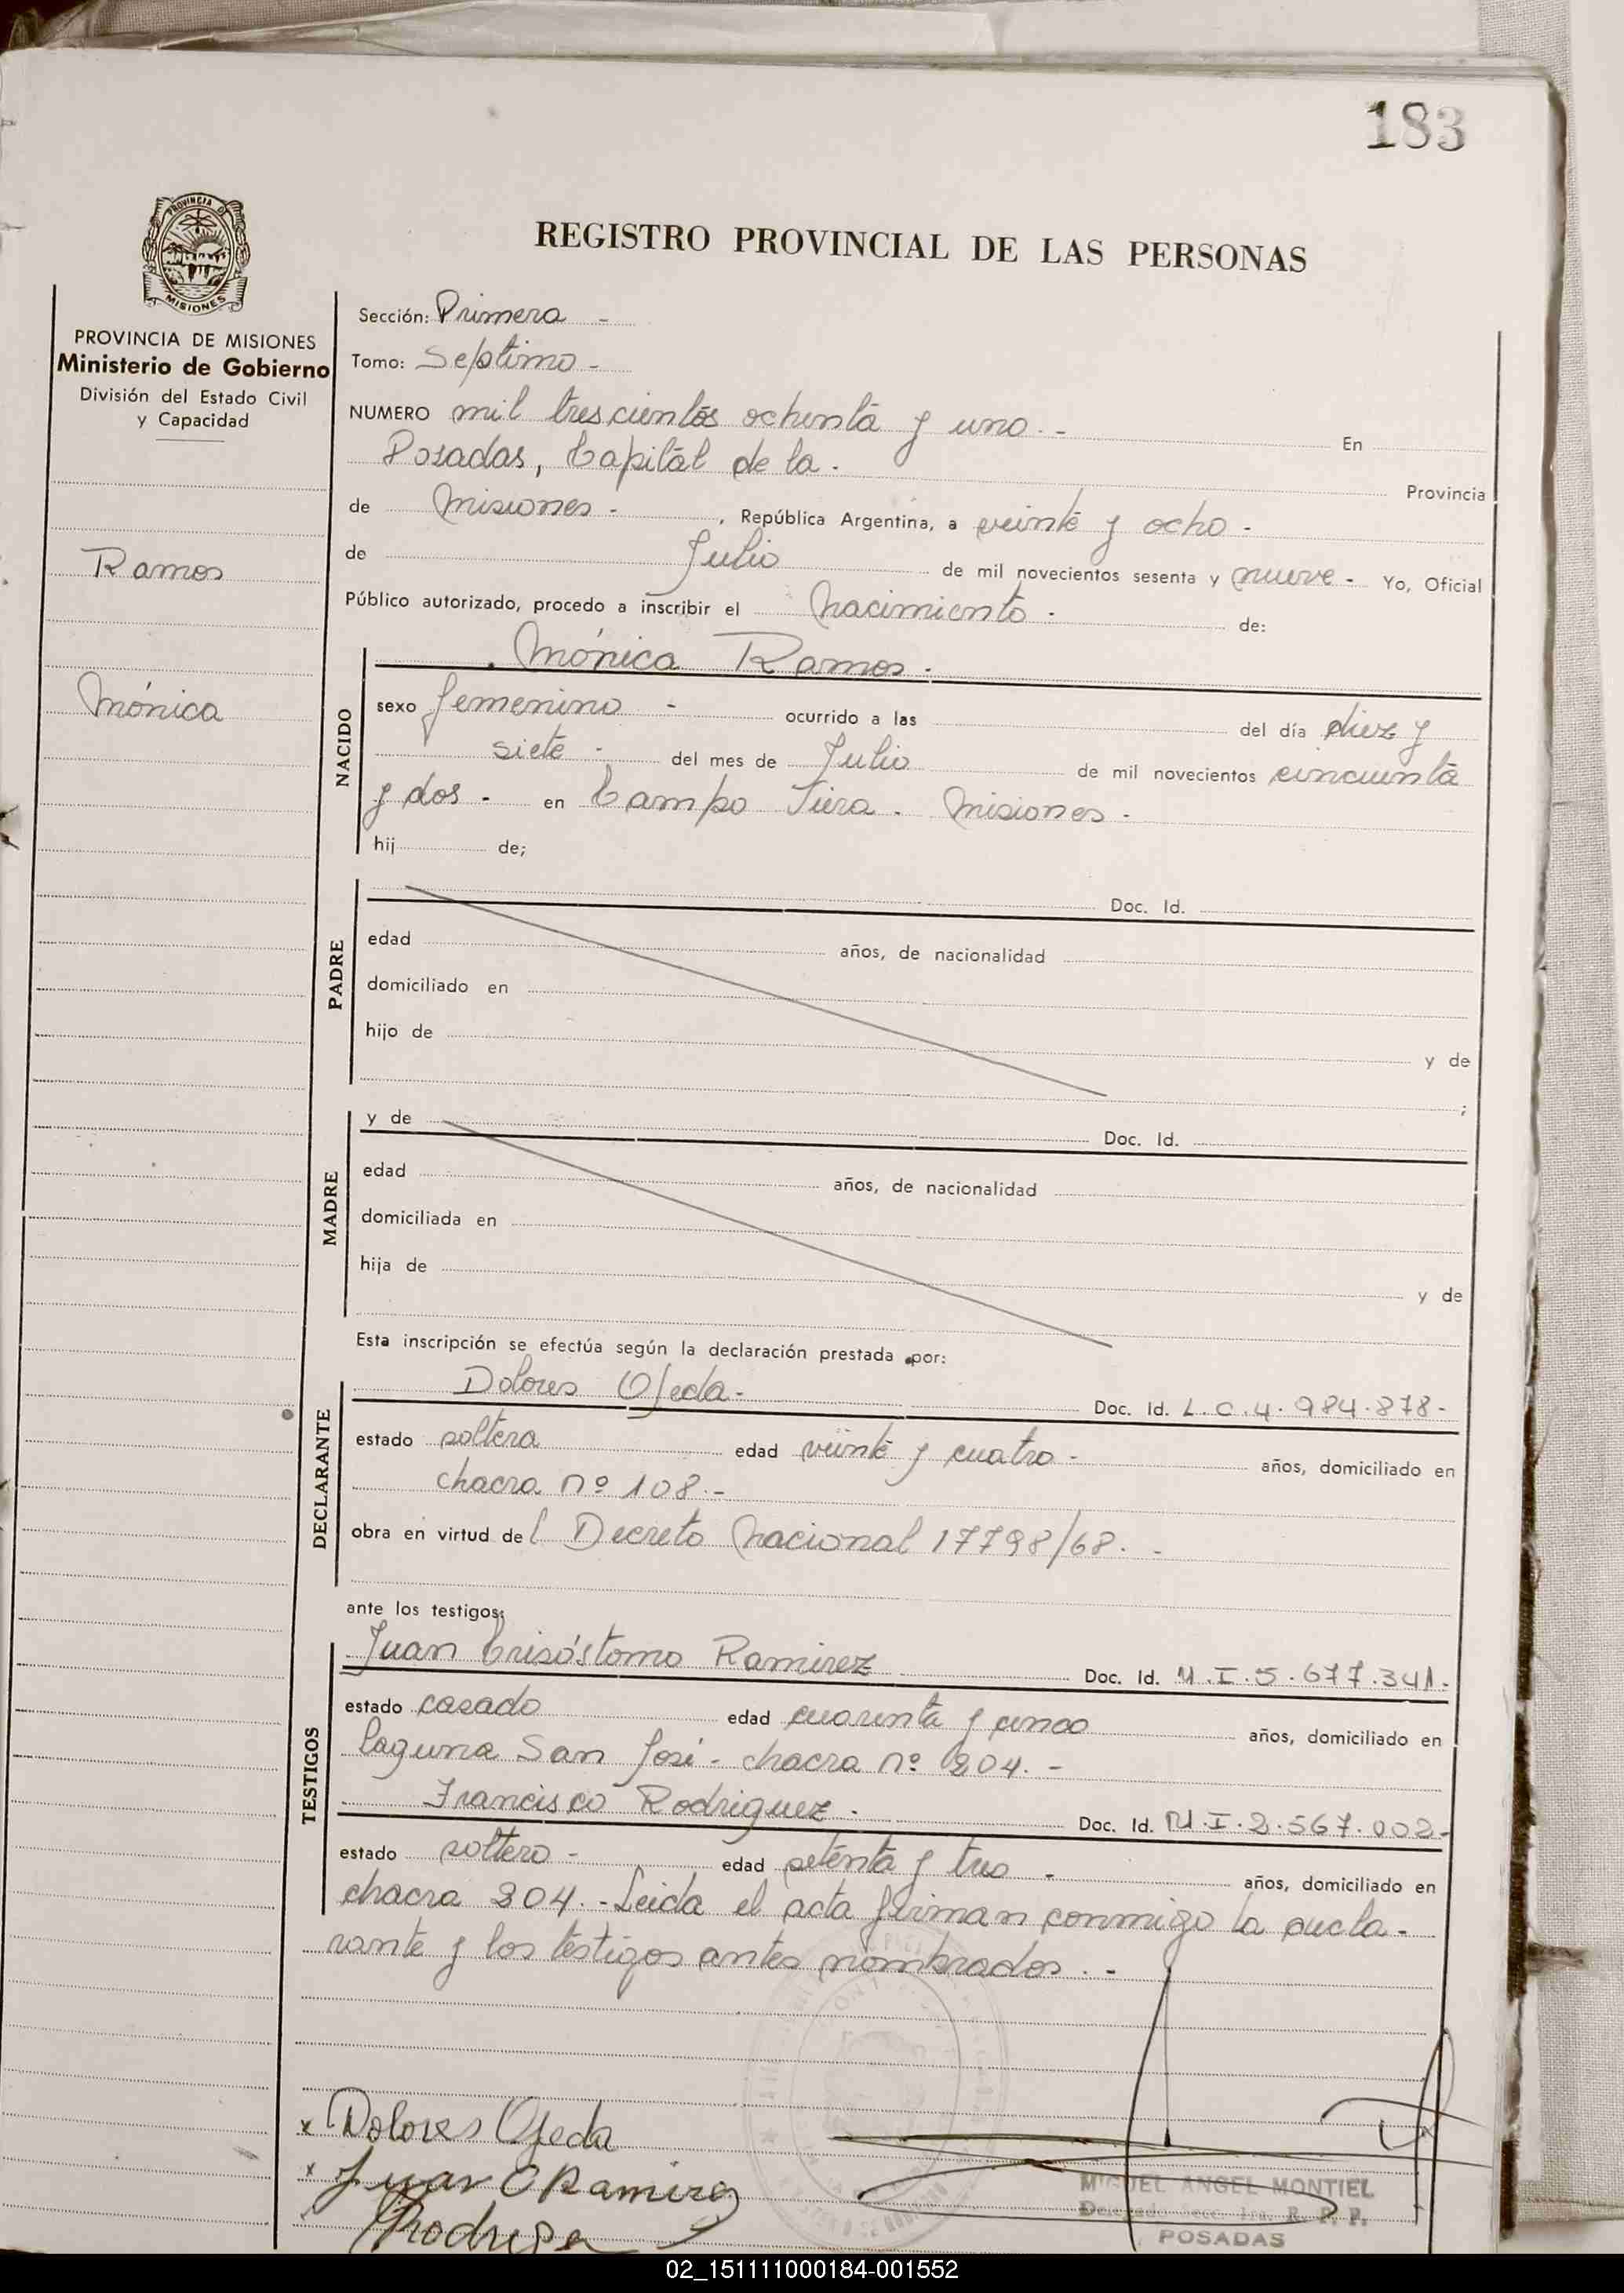 183
PROVINCIA DE
MISIONES
REGISTRO PROVINCIAL DE LAS PERSONAS
PROVINCIA DE MISIONES
Ministerio de Gobierno
División del Estado Civil
y Capacidad
Ramos
Mónica
Sección: Primera -
Tomo: Septimo -
NUMERO mil trescientos ochenta y uno. - En
Posadas, Capital de la. Provincia
de Misiones - , República Argentina, a veinte y ocho -
de Julio de mil novecientos sesenta y nueve - Yo, Oficial
Público autorizado, procedo a inscribir el Nacimiento - de:
NACIDO
Mónica Ramos.
sexo femenino - ocurrido a las del día diez y
siete - del mes de Julio de mil novecientos cincuenta
y dos - en Campo Viera. Misiones -
hij de;
PADRE
Doc. Id.
edad años, de nacionalidad
domiciliado en
hijo de y de
;
MADRE
y de Doc. Id.
edad años, de nacionalidad
domiciliada en
hija de y de
Esta inscripción se efectúa según la declaración prestada por:
DECLARANTE
Dolores Ojeda - Doc. Id. L.C.4.984.878-
estado soltera edad veinte y cuatro - años, domiciliado en
chacra nº 108.-
obra en virtud del Decreto Nacional 17798/68. -
ante los testigos:
TESTIGOS
Juan Crisóstomo Ramirez Doc. Id. M.I.5.677.341.
estado casado edad cuarenta y cinco años, domiciliado en
laguna San José - chacra nº 204. -
Francisco Rodriguez. Doc. Id. M.I.2.567.002-
estado soltero - edad setenta y tres - años, domiciliado en
chacra 204. - Leida el acta firman conmigo la decla-
rante y los testigos antes nombrados. -
x Dolores Ojeda
x Juan C Ramirez
Rodrigez
MIGUEL ANGEL MONTIEL
Delegado Secc. 1ra. R. P. P.
POSADAS
02_151111000184-001552